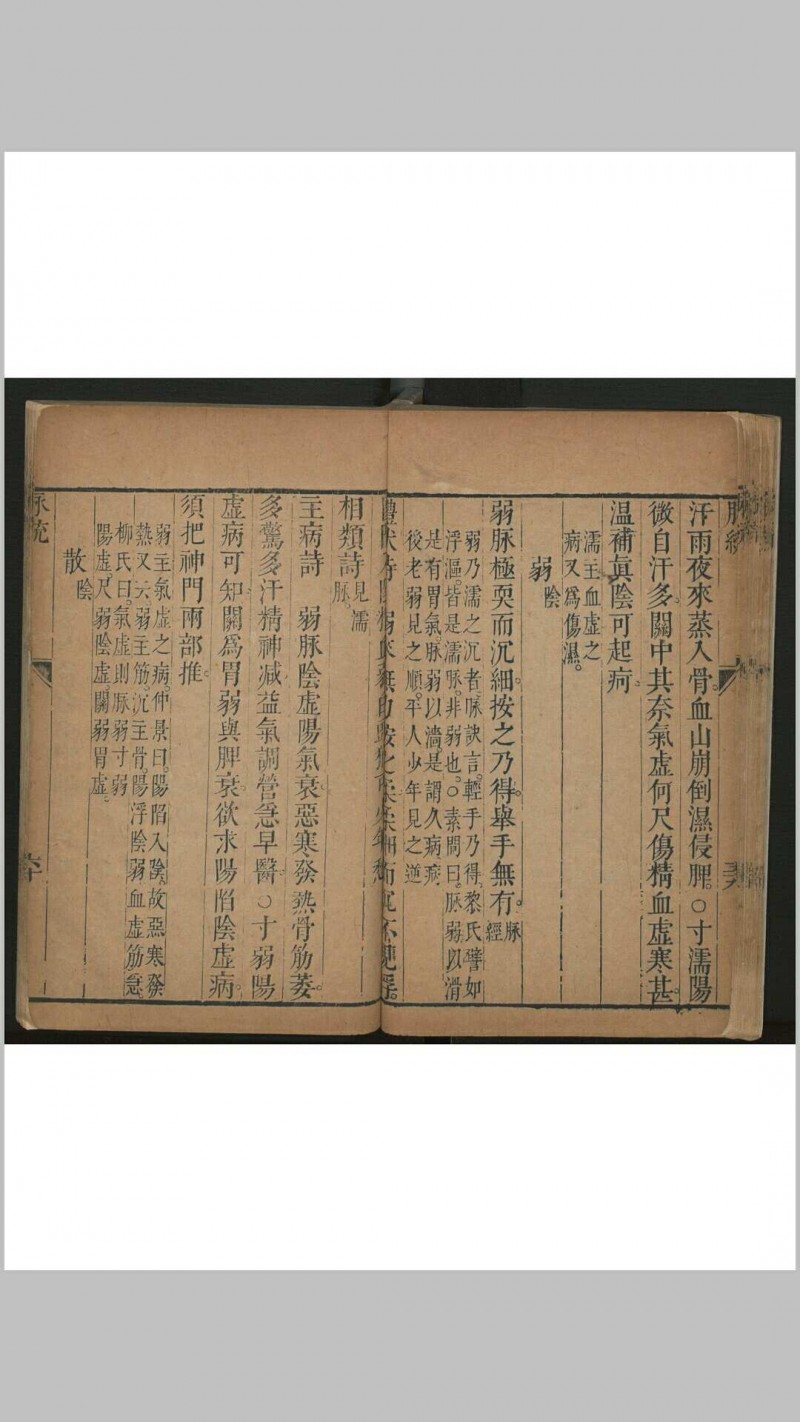 汗雨夜來蒸入骨血山崩倒濕侵脾○寸濡陽
微自汗多關中其奈氣虛何尺傷精血虛寒甚
温補真陰可起疴
濡主血虛之
病又爲傷濕
弱陰
弱脉極耎而沉細按之乃得舉手無有脉
經
弱乃濡之沉者脉訣言輕手乃得黎氏譬如
浮漚皆是濡脉非弱也○素問曰脉弱以滑
是有胃氣脉弱以濇是謂久病病
後老弱見之順平人少年見之逆
相類詩見濡
脉
主病詩 弱脉陰虛陽氣衰惡寒發熱骨筋萎
多驚多汗精神減益氣調營急早醫○寸弱陽
虛病可知關爲胃弱與脾衰欲求陽陷陰虛病
須把神門兩部推
弱主氣虛之病仲景曰陽陷入陰故惡寒發
熱又云弱主筋沉主骨陽浮陰弱血虛筋急
柳氏曰氣虛則脉弱寸弱
陽虛尺弱陰虛關弱胃虛
散陰